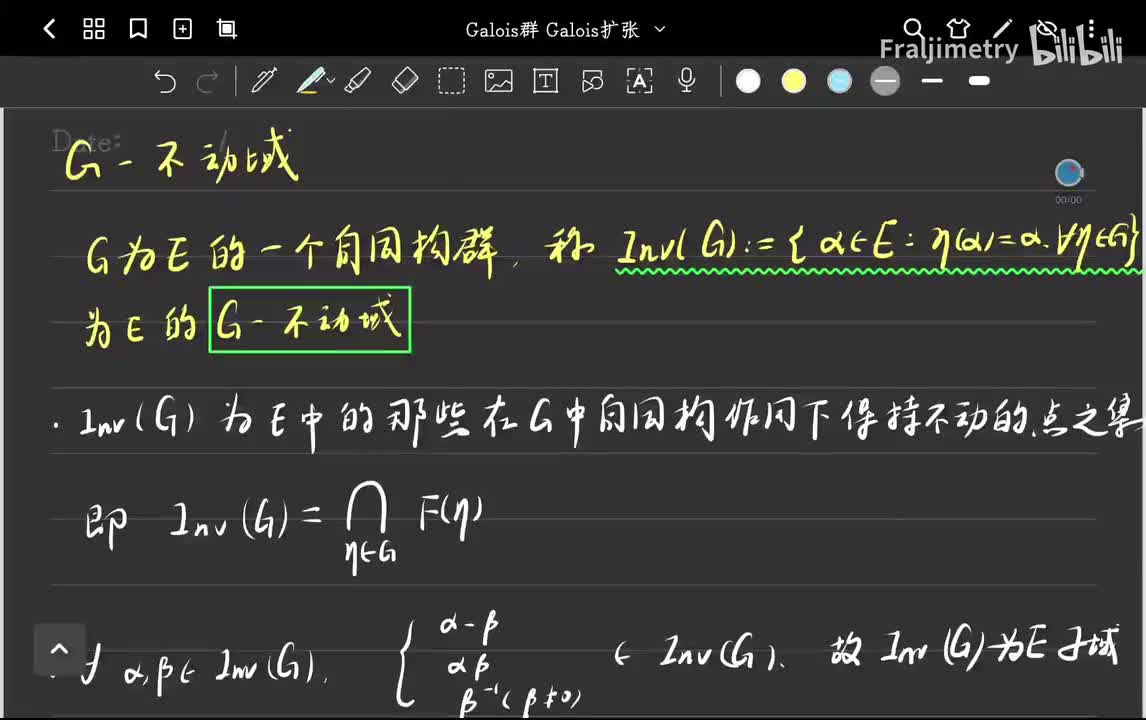 Galois群 Galois扩张
Fraljimetry bilibili
Date:
G-不动域
00:00
G为E的一个自同构群, 称 Inv(G):={α∈E: η(α)=α. ∀η∈G}
为E的 G-不动域
· Inv(G) 为E中的那些在G中自同构作用下保持不动的点之集
即 Inv(G) = ⋂ F(η)
η∈G
α,β∈ Inv(G), { α-β
αβ ∈ Inv(G). 故 Inv(G)为E子域
β⁻¹(β≠0)